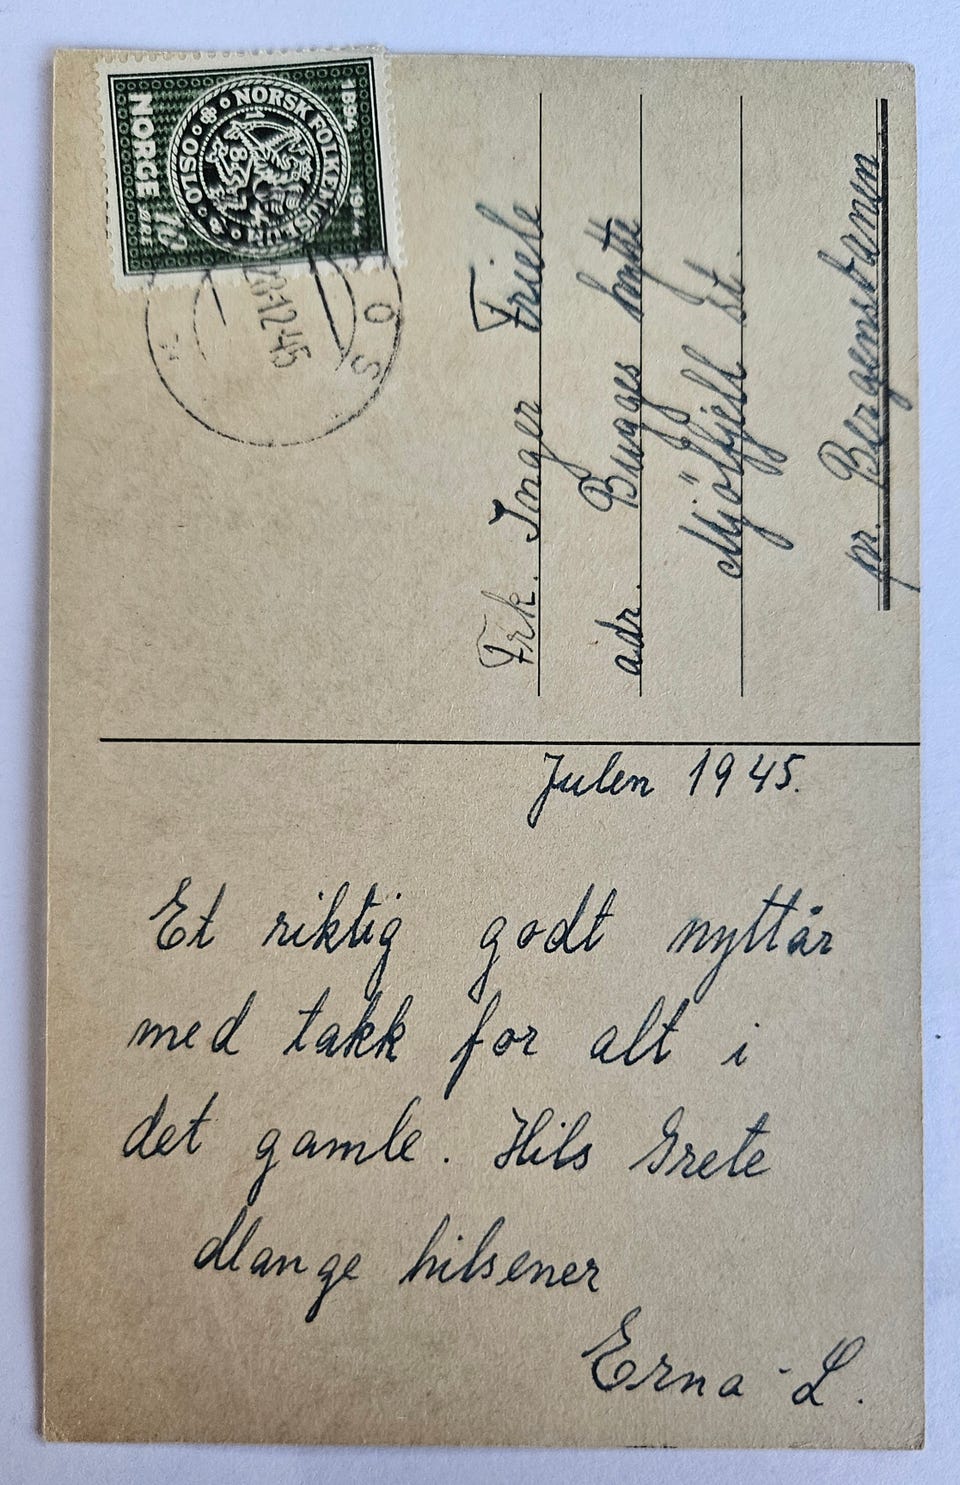 NORSK FOLKEMUSEUM
OSLO
1894 1944
NORGE
10 ØRE
28-12-45
O S
Frk. Inger Friele
adr. Bugges hytte
Mjölfjell st.
pr. Bergensbanen
Julen 1945.
Et riktig godt nyttår
med takk for alt i
det gamle. Hils Grete
Mange hilsener
Erna - L.